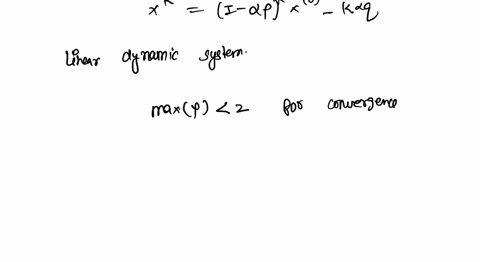 x^k = (I-αP)^k x^(0) - kαq
Linear dynamic system.
max(P) < 2 for convergence